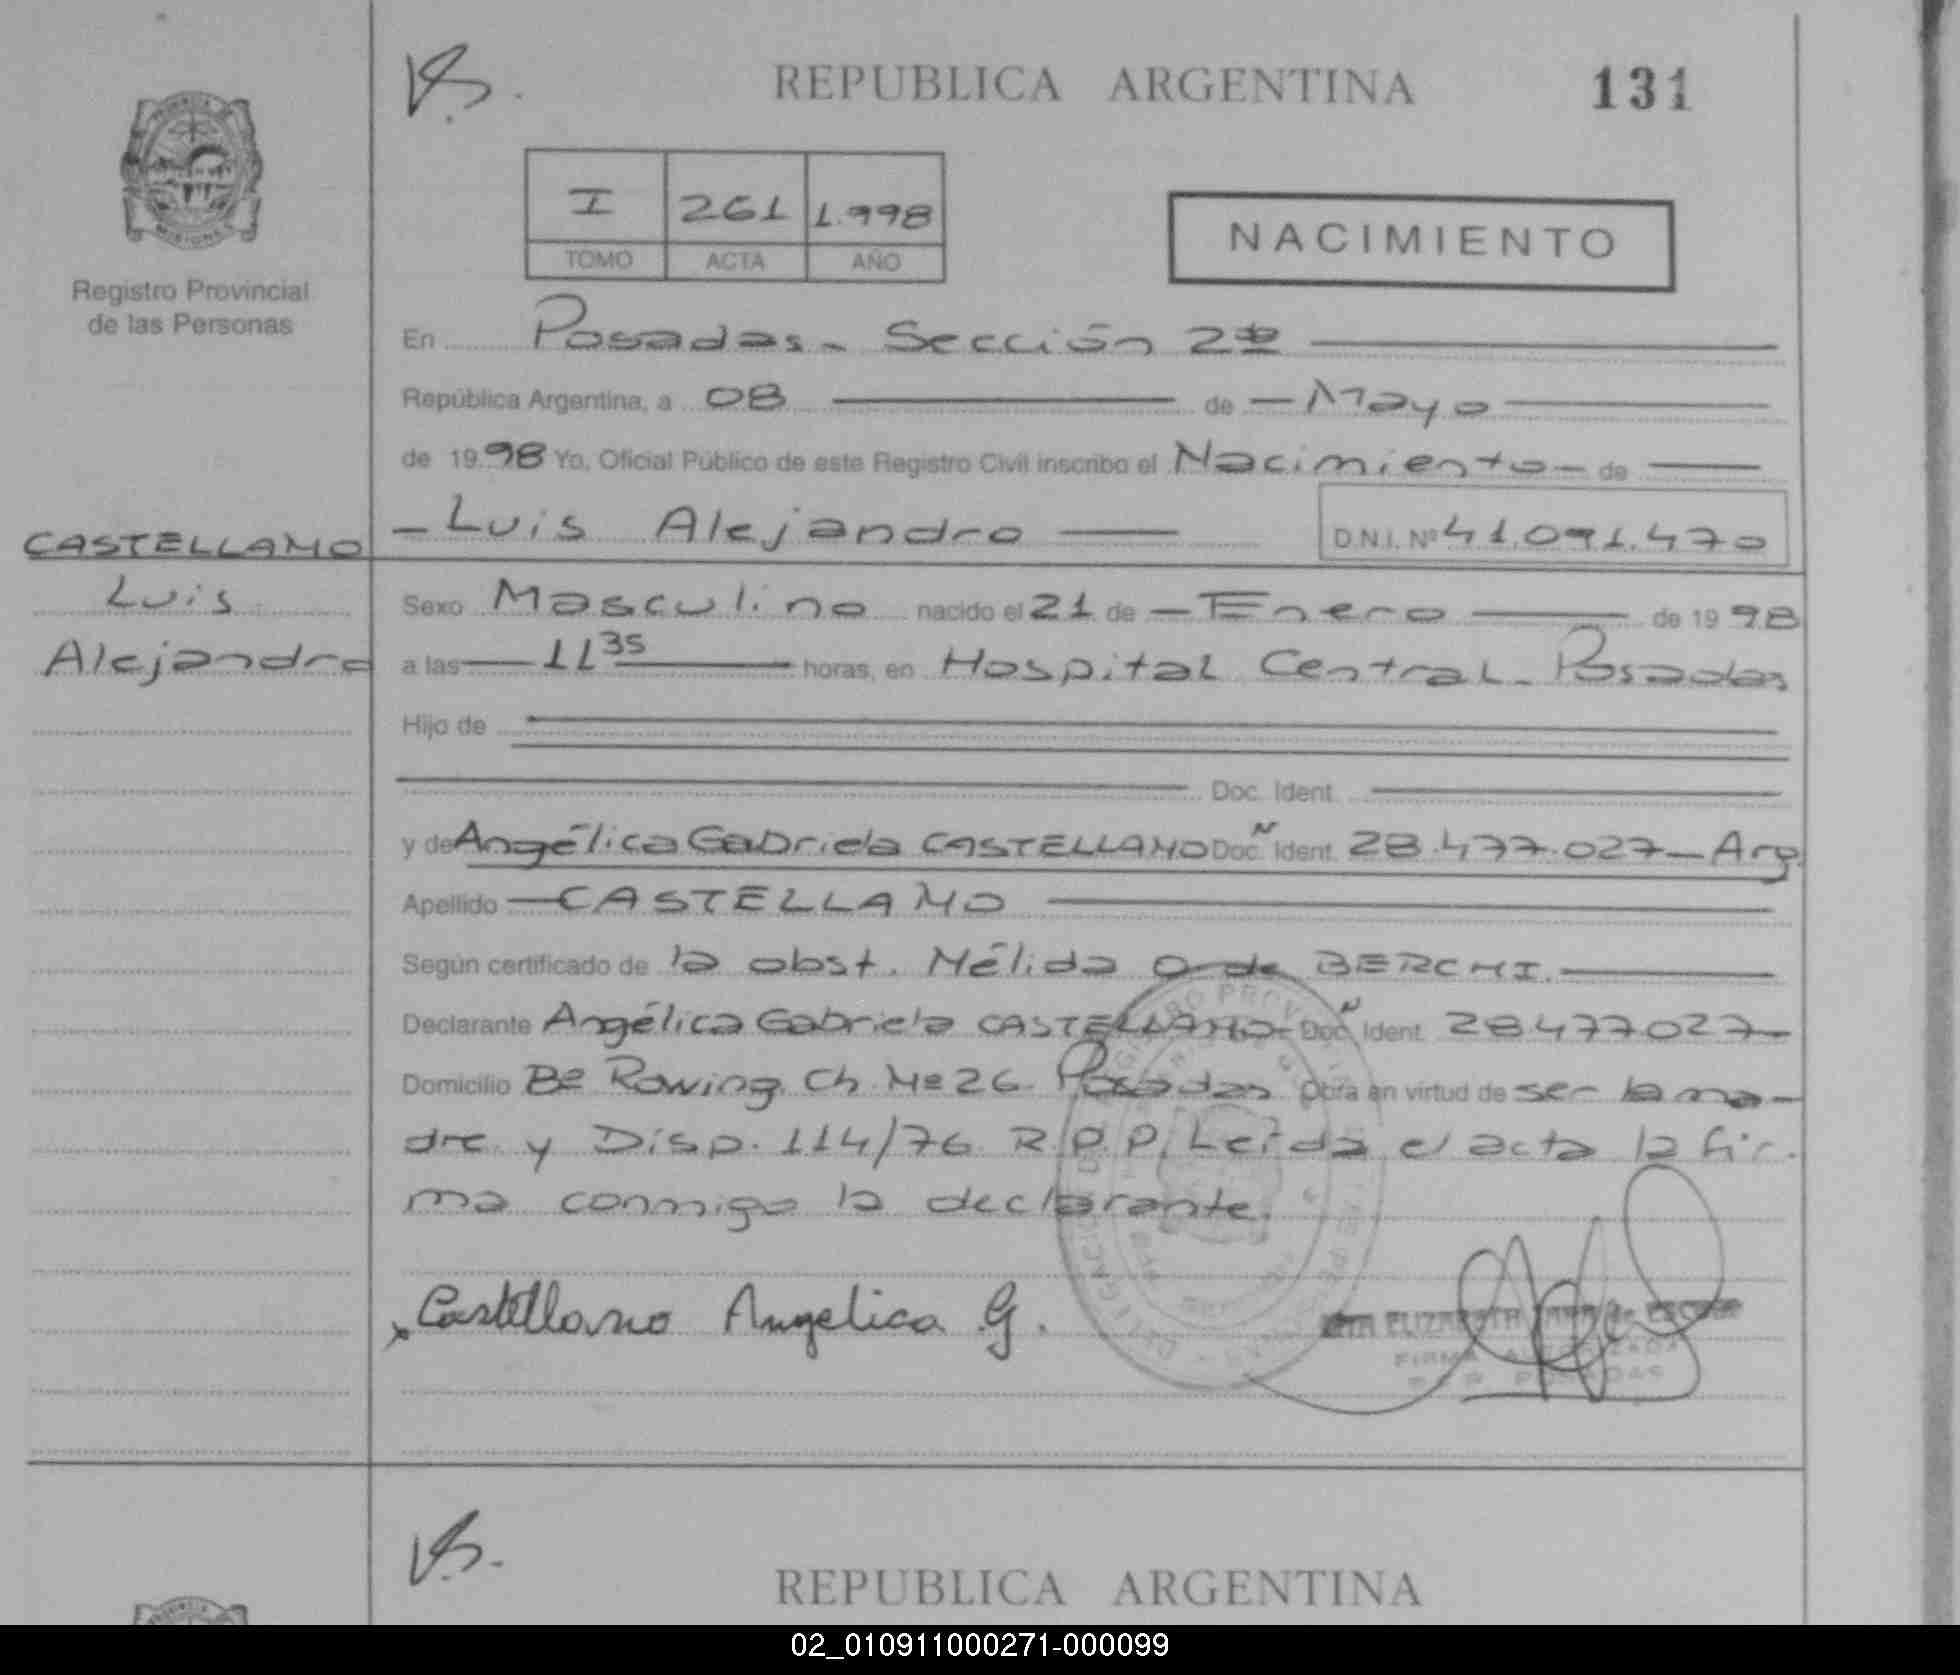 REPUBLICA ARGENTINA
131
PROVINCIA
MISIONES
Registro Provincial
de las Personas
I 261 1.998
TOMO ACTA AÑO
NACIMIENTO
En Posadas - Sección 2ª
República Argentina, a 08 de - Mayo
de 1998 Yo, Oficial Público de este Registro Civil inscribo el Nacimiento - de
- Luis Alejandro
D.N.I. Nº 41.091.470
CASTELLANO
Luis
Alejandro
Sexo Masculino nacido el 21 de - Enero de 1998
a las 11 35 horas, en Hospital Central - Posadas
Hijo de
Doc. Ident.
y de Angélica Gabriela CASTELLANO Doc. Ñ Ident. 28.477.027 - Arg.
Apellido - CASTELLANO
Según certificado de la obst. Nélida O de BERCHI.
Declarante Angélica Gabriela CASTELLANO - Doc. Ñ Ident. 28477027 -
Domicilio Bº Rowing Ch. Nº 26. Posadas Obra en virtud de ser la ma-
dre y Disp. 114/76 R.P.P. Leída el acta la fir-
ma conmigo la declarante.
Castellano Angelica G.
ELIZABETH
FIRMA AUTORIZADA
R P P POSADAS
REPUBLICA ARGENTINA
02_010911000271-000099